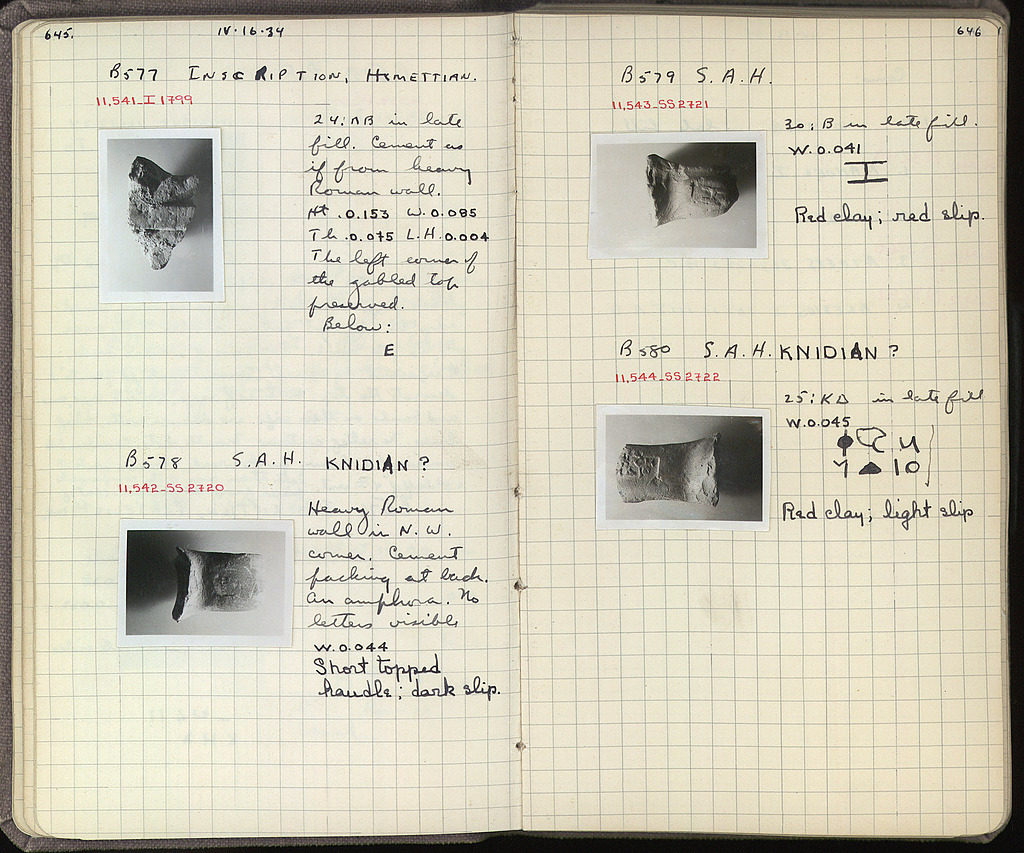 645.
IV.16.34
B577 INSCRIPTION, HYMETTIAN.
11,541_I 1799
24:ΛB in late
fill. Cement as
if from heavy
Roman wall.
Ht .0.153 W.0.085
Th .0.075 L.H.0.004
The left corner of
the gabled top
preserved.
Below:
E
B578 S.A.H. KNIDIAN?
11,542_SS2720
Heavy Roman
wall in N.W.
corner. Cement
packing at back.
An amphora. No
letters visible
W.0.044
Short topped
handle; dark slip.
646
B579 S.A.H.
11,543_SS2721
30:B in late fill.
W.0.041
I
Red clay; red slip.
B580 S.A.H. KNIDIAN?
11,544_SS2722
25:KΔ in late fill
W.0.045
10
Red clay; light slip